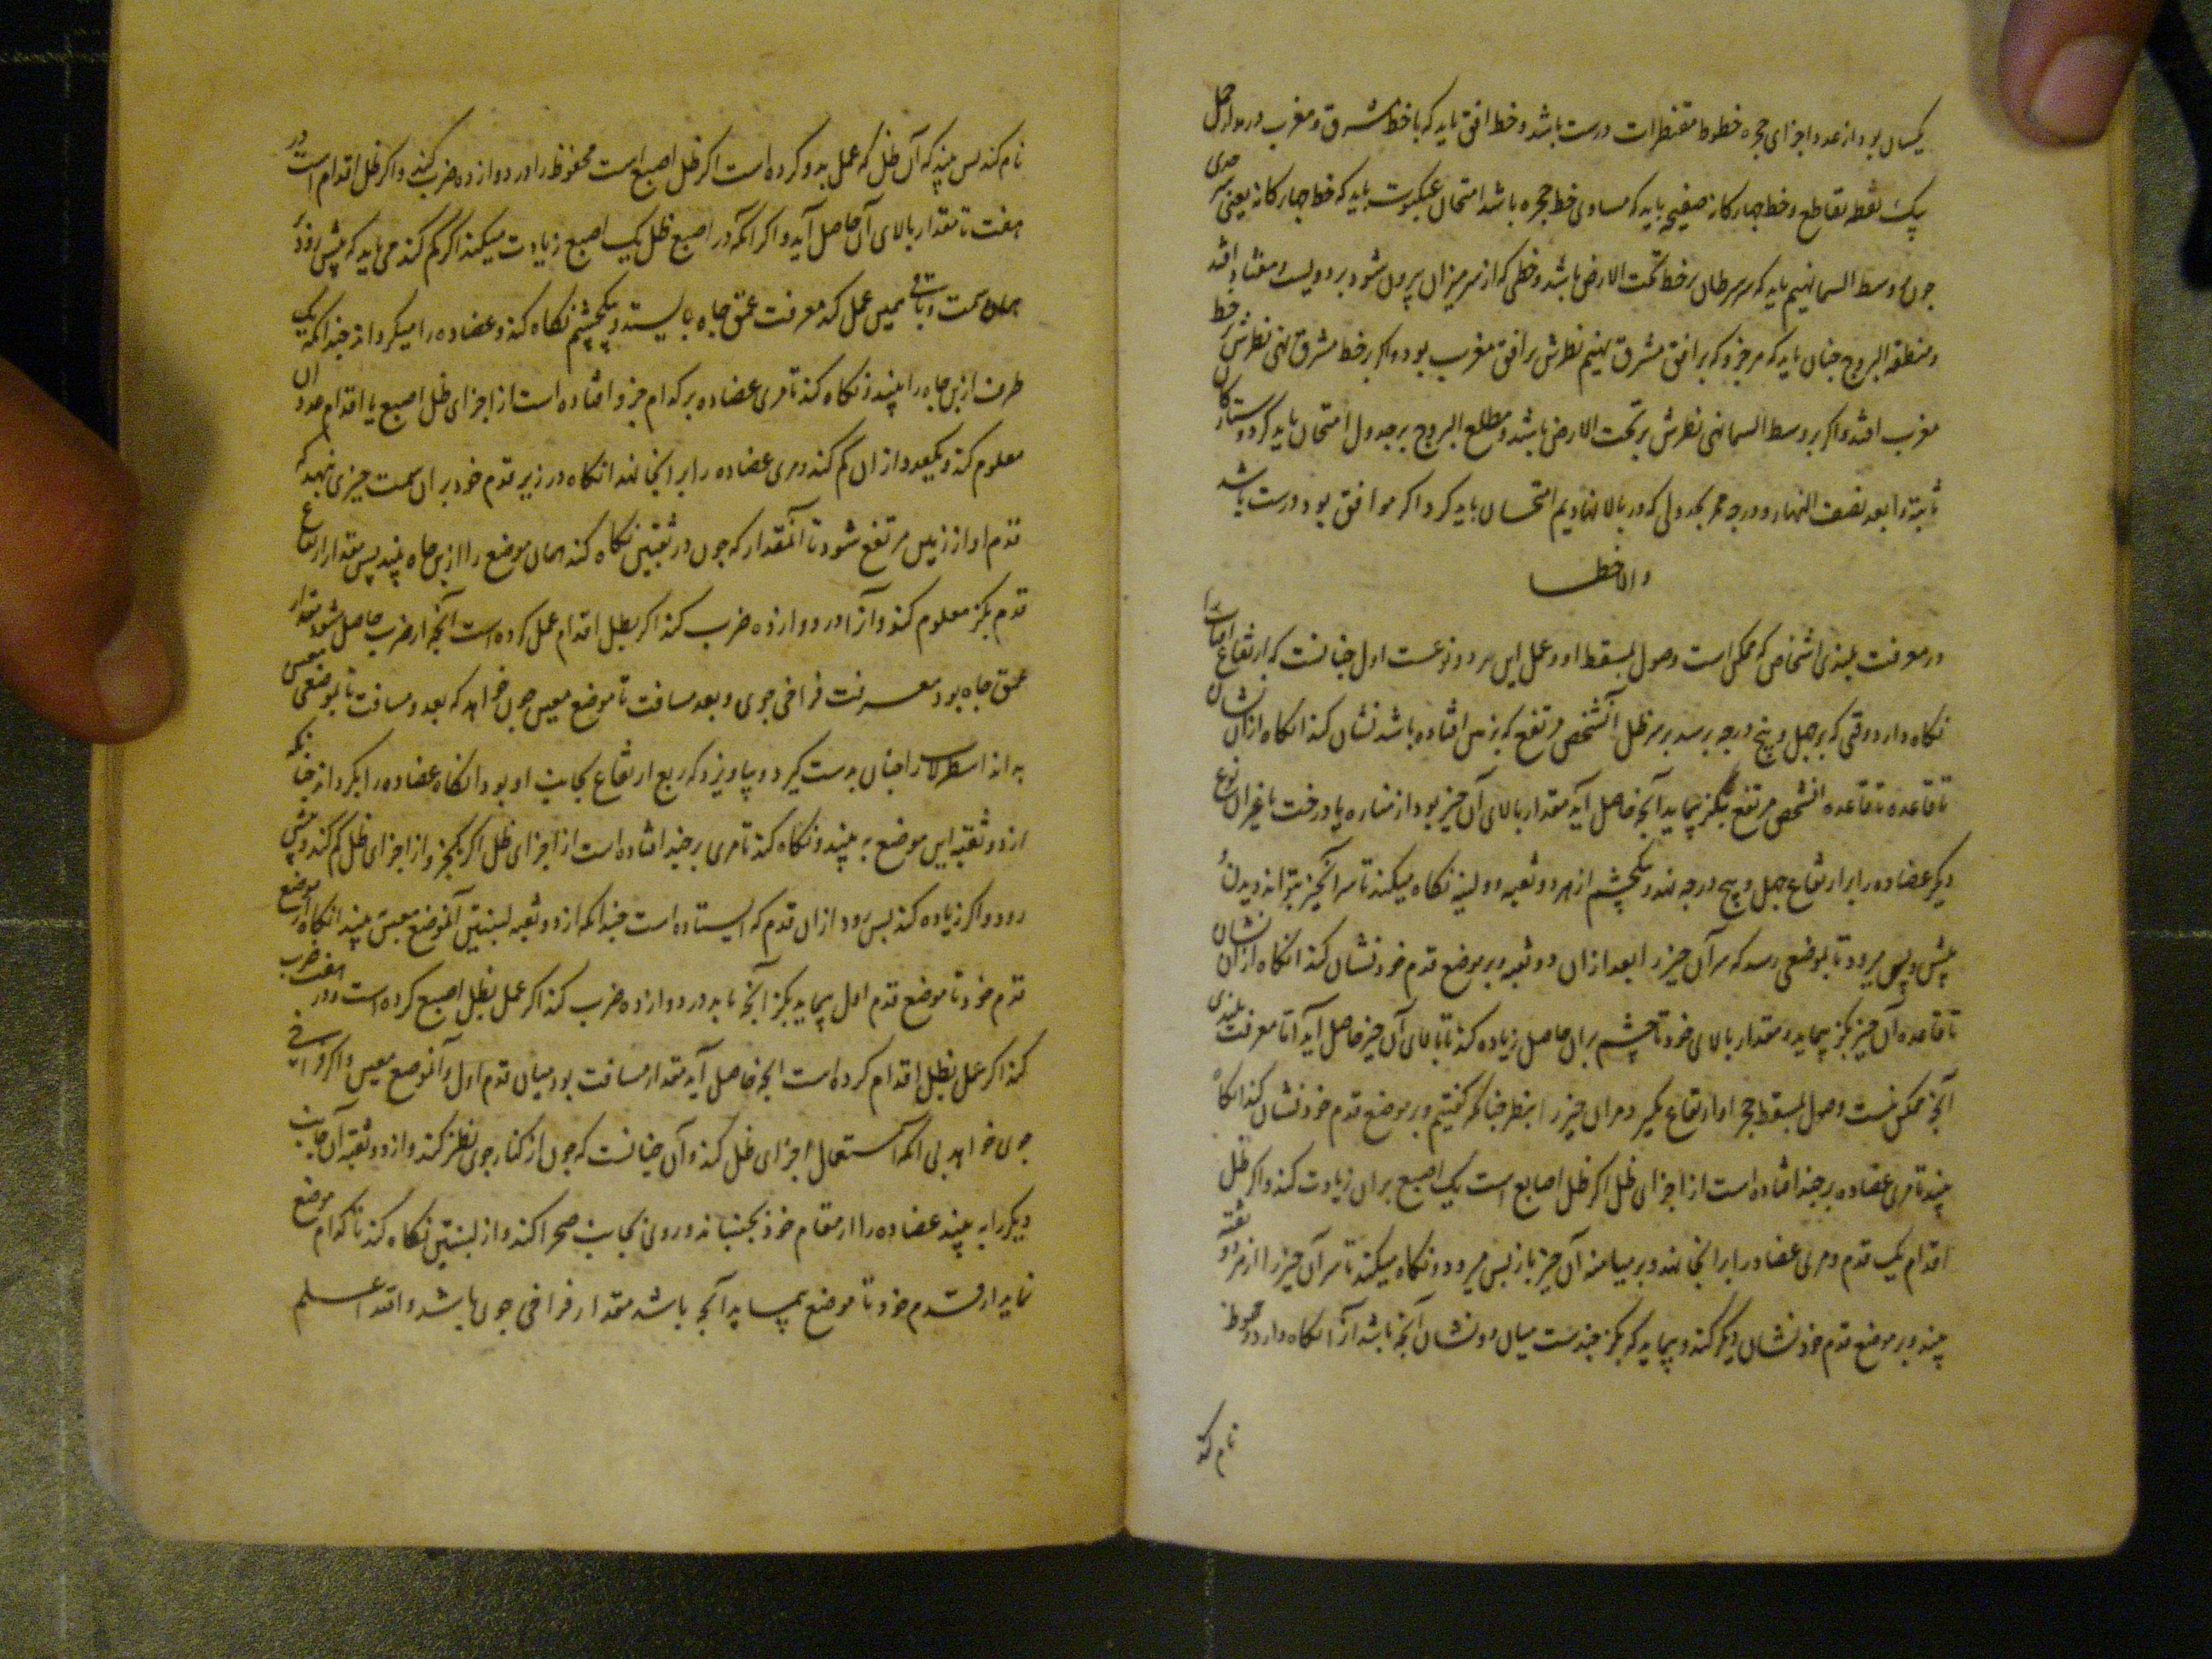 یکسان بود از عدد اجزای حجره خطوط مقنطرات درست باشد و خط افق باید که با خط مشرق و مغرب در
یک نقطه تقاطع و خط چهارکانه صفیحه باید که مساوی خط حجره باشد امتحان عنکبوت باید که خط چهارکانه یعنی سر جدی
چون بر وسط السما نهیم باید که سر سرطان بر خط تحت الارض باشد و خطی که از سر میزان بیرون شود بر دویست و هفتاد افتد
و منطقة البروج چنان باید که هر جزو که بر افق مشرق نهیم نظرش بر افق مغرب بود و اکر بر خط مشرق نهی نظرش بر خط
مغرب افتد و اکر بر وسط السما نهی نظرش بر تحت الارض باشد و مطلع البروج بر جدول امتحان باید کرد و ستارکان
ثابته را بعد نصف النهار و درجه ممر بجدولی که در بالا نهادیم امتحان باید کرد اکر موافق بود درست باشد
والا خطا
در معرفت بلندی اشخاص که ممکن است وصول بمسقط او و عمل این بر دو نوعست اول چنانست که ارتفاع آفتاب را
نکاه دارد وقتی که بر چهل و پنج درجه برسد بر سر ظل آنشخص مرتفع که بزمین افتاده باشد نشان کند انکاه از آن نشان
تا قاعده تا قاعده انشخص مرتفع بکز پیماید آنچه حاصل آید مقدار بالای آن چیز بود از مناره یا درخت یا غیر آن نوع
دیکر عضاده را بر ارتفاع چهل و پنج درجه نهد و بیکچشم از هر دو ثقبه دو لبنه نکاه میکند تا سر آنچیز بتواند دیدن و
پیش و پس میرود تا بموضعی رسد که سر آن چیز را بعد از آن دو ثقبه و بر موضع قدم خود نشان کند انکاه از آن نشان
تا قاعده آن چیز بکز پیماید و مقدار بالای خود تا چشم بران حاصل زیاده کند تا بالای آن چیز حاصل آید اما معرفت بلندی
آنچه ممکن نیست وصول بمسقط حجر او ارتفاع بکیرد سر آن چیز را بنظر چنانکه کفتیم و بر موضع قدم خود نشان کند انکاه
بیند تا مری عضاده بر چند افتاده است از اجزای ظل اکر ظل اصابع است یک اصبع بران زیادت کند و اکر ظل
اقدام یک قدم و مری عضاده را بر انجا نهد و بر میامنه آن چیز باز پس میرود و نکاه میکند تا سر آن چیز را از هر دو ثقبه
بیند و بر موضع قدم خود نشان دیکر کند و پیماید که بکز چندست میان دو نشان آنچه باشد آنرا نکاه دارد و محفوظ
نام کند
نام کند پس بیند که آن ظل که عمل بدو کرده است اکر ظل اصبع است محفوظ را در دوازده ضرب کند و اکر ظل اقدام است در
هفت تا مقدار بالای آن حاصل آید و اکر آنکه در اصبع ظل یک اصبع زیادت میکند اکر کم کند می باید که پیش رود بر
همان سمت و باقی همین عمل کند معرفت عمق چاه بایستد و بیکچشم نکاه کند و عضاده را میکرداند چندانکه یک
طرف از بن چاه را ببیند نکاه کند تا مری عضاده بر کدام جزو افتاده است از اجزای ظل اصبع یا اقدام عدد آن
معلوم کند و یکعدد از ان کم کند و مری عضاده را بر انجا نهد انکاه در زیر قدم خود بر ان سمت چیزی نهد که
قدم او از زمین مرتفع شود تا آنمقدار که چون در ثقبتین نکاه کند همان موضع را از بن چاه ببیند پس مقدار ارتفاع
قدم بکز معلوم کند و آنرا در دوازده ضرب کند اکر بظل اقدام عمل کرده است آنچه از ضرب حاصل شود مقدار
عمق چاه بود معرفت فراخی جوی و بعد مسافت تا موضع معین چون خواهد که بعد و مسافت تا بموضعی معین
بداند اسطرلاب را چنان بدست کیرد و بیاویزد که ربع ارتفاع بجانب او بود انکاه عضاده را بکرداند چنانکه
از دو ثقبه این موضع به بیند و نکاه کند تا مری بر چند افتاده است از اجزای ظل اکر یکجزو از اجزای ظل کم کند و پیش
رود و اکر زیاده کند پس رود از ان قدم که ایستاده است چندانکه از دو ثقبه لبنتین آنموضع معین بیند انکاه از موضع
قدم خود تا موضع قدم اول پیماید بکز آنچه یابد در دوازده ضرب کند اکر عمل بظل اصبع کرده است و در هفت ضرب
کند اکر عمل بظل اقدام کرده است آنچه حاصل آید مقدار مسافت بود میان قدم اول و آنموضع معین و اکر فراخی
جوی خواهد بی آنکه استعمال اجزای ظل کند و آن چنانست که چون از کنار جوی نظر کند و از دو ثقبه آن جانب
دیکر را به بیند عضاده را از مقام خود نجنباند و روی بجانب صحرا کند و از لبنتین نکاه کند تا کدام موضع
نماید از قدم خود تا موضع بپیماید آنچه باشد مقدار فراخی جوی باشد والله اعلم